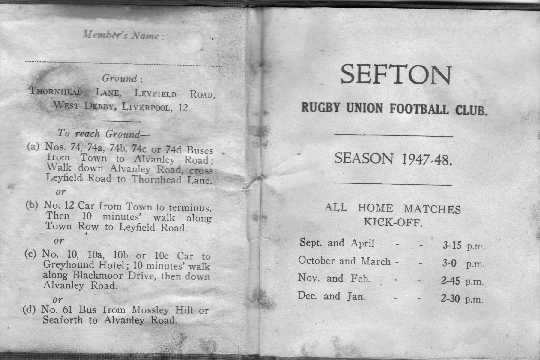 Member's Name:
Ground:
THORNHEAD LANE, LEYFIELD ROAD,
WEST DERBY, LIVERPOOL, 12.
To reach Ground—
(a) Nos. 74, 74a, 74b, 74c or 74d Buses
from Town to Alvanley Road;
Walk down Alvanley Road, cross
Leyfield Road to Thornhead Lane.
or
(b) No. 12 Car from Town to terminus.
Then 10 minutes' walk along
Town Row to Leyfield Road.
or
(c) No. 10, 10a, 10b or 10c Car to
Greyhound Hotel; 10 minutes' walk
along Blackmoor Drive, then down
Alvanley Road.
or
(d) No. 61 Bus from Mossley Hill or
Seaforth to Alvanley Road.
SEFTON
RUGBY UNION FOOTBALL CLUB.
SEASON 1947-48.
ALL HOME MATCHES
KICK-OFF.
Sept. and April - - 3-15 p.m.
October and March - - 3-0 p.m.
Nov. and Feb. - - 2-45 p.m.
Dec. and Jan. - - 2-30 p.m.